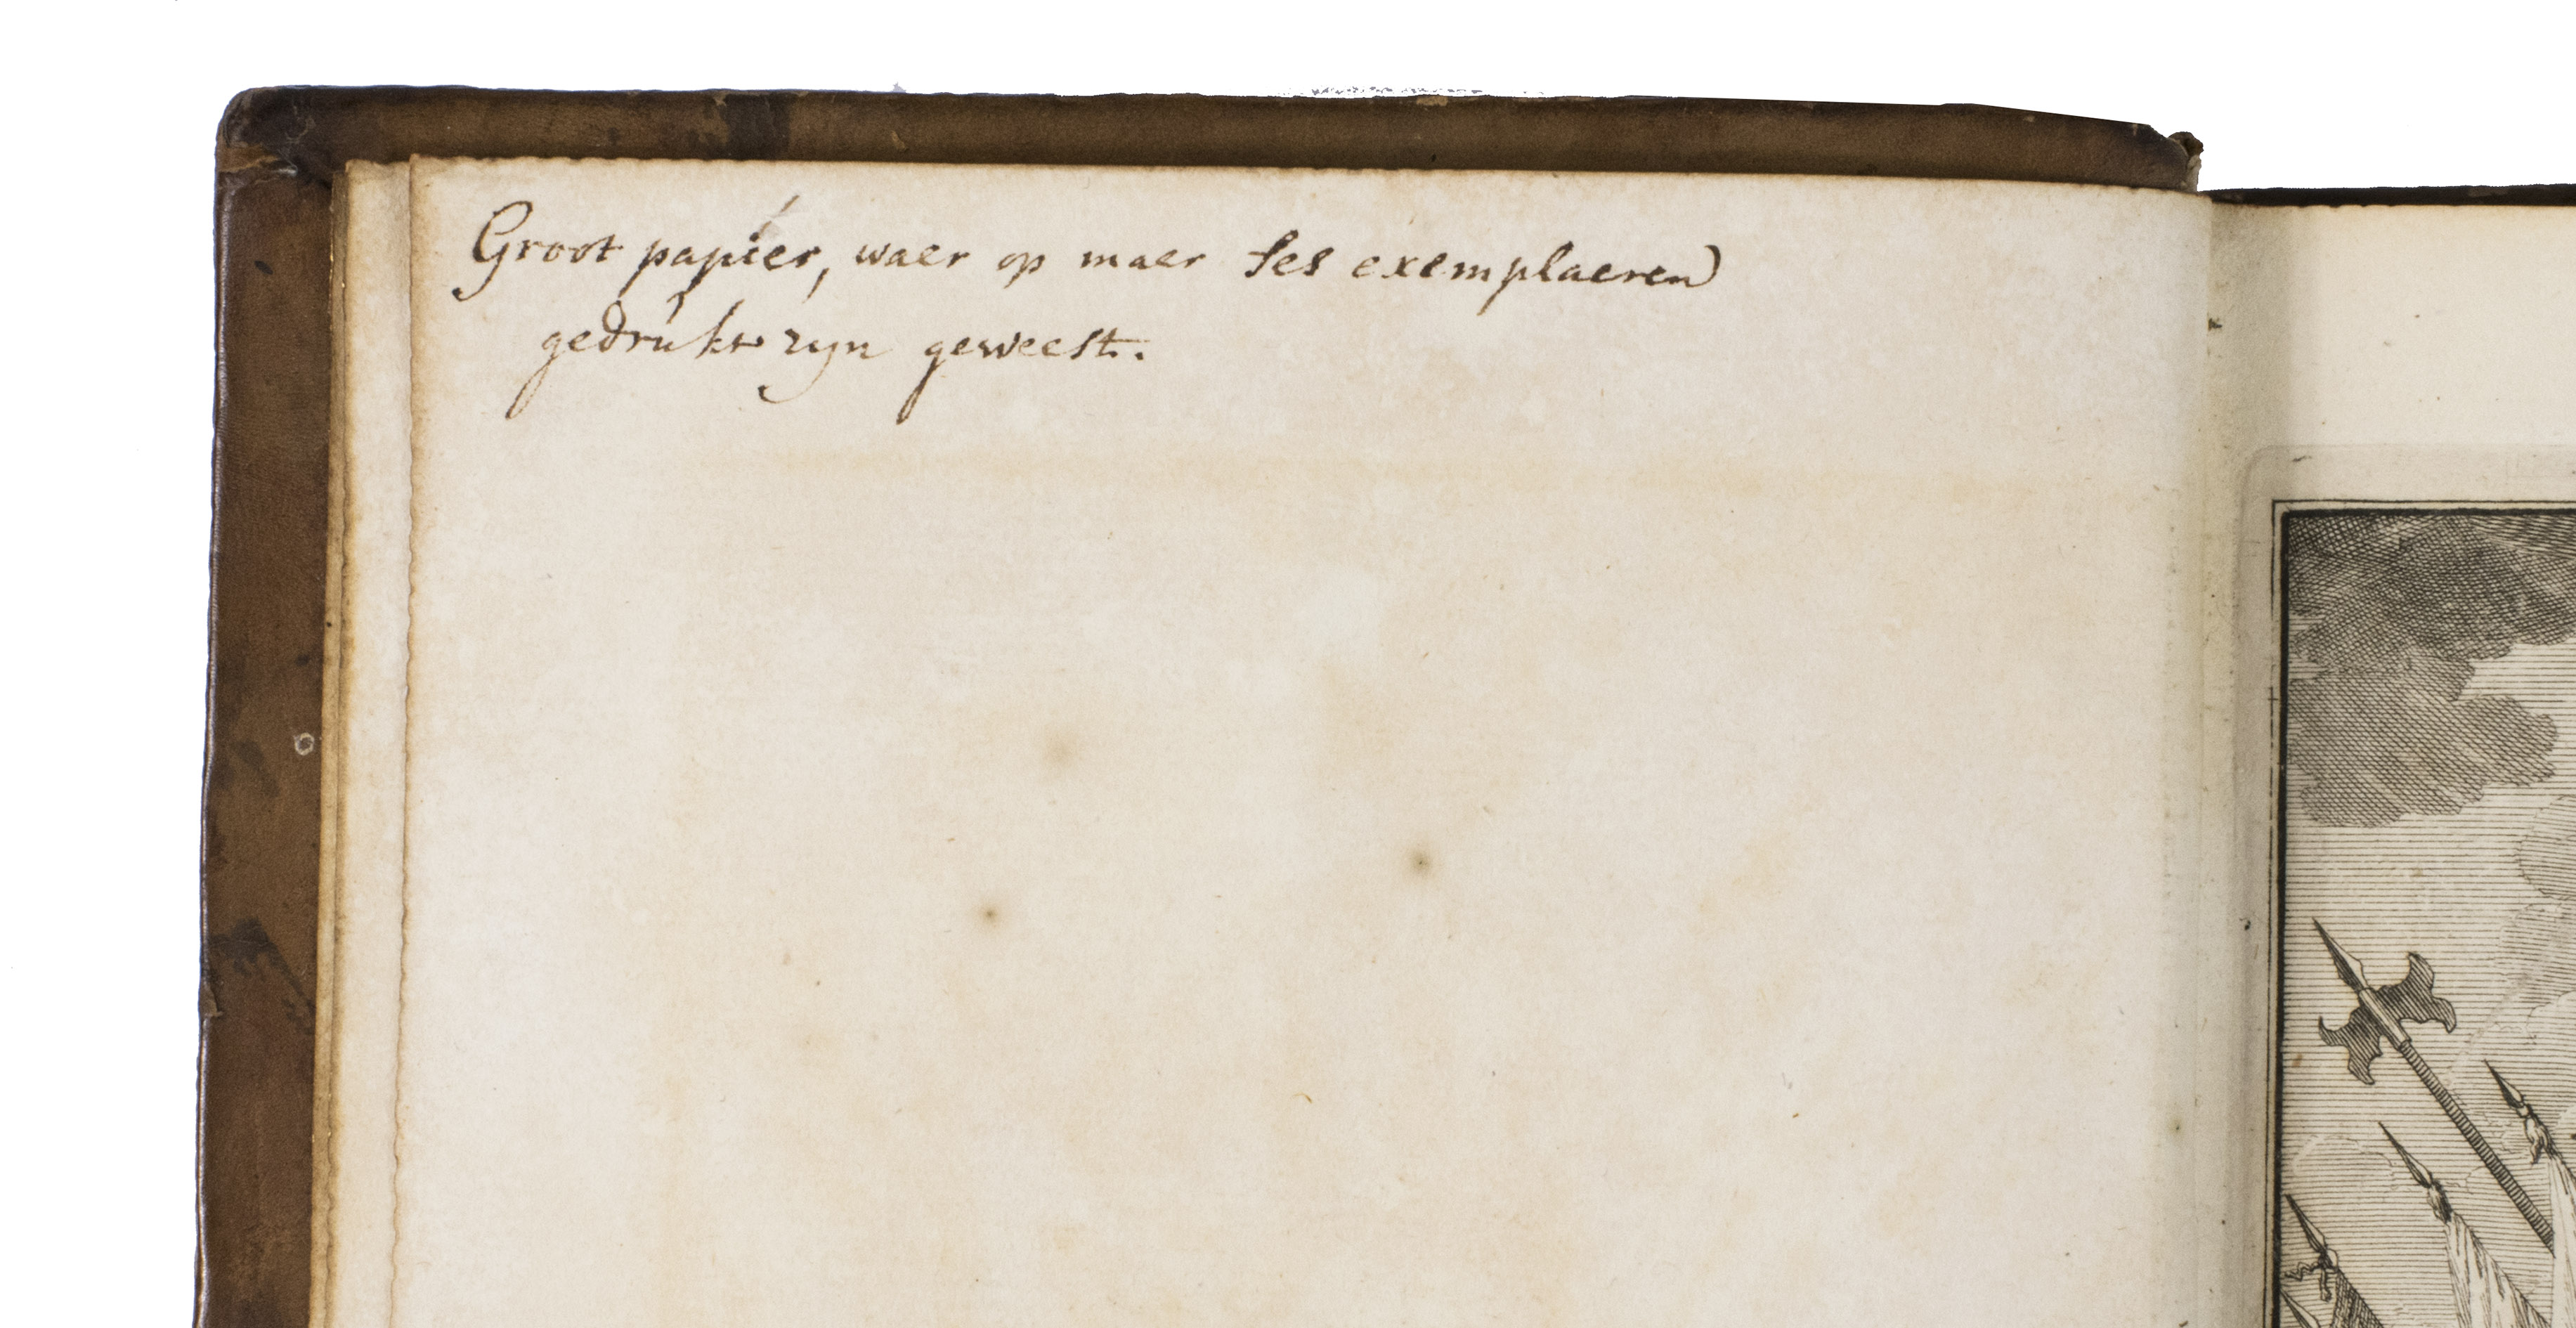 Groot papier, waer op maer ses exemplaeren
gedrukt zyn geweest.